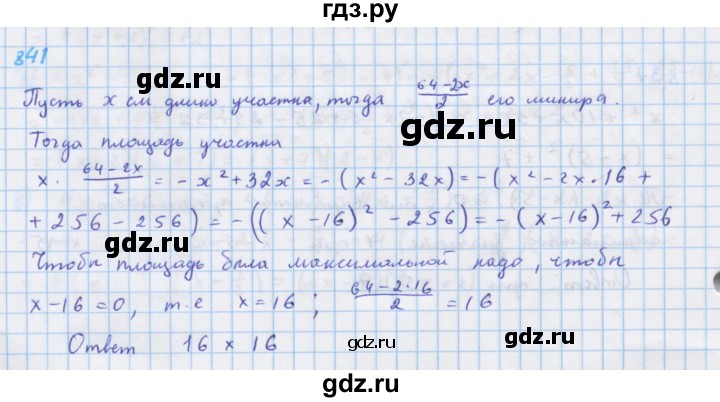 гдз.ру
841
Пусть x см длино участка, тогда (64-2x)/2 его ширира.
gdz.ru
Тогда площадь участка
gdz.ru
x · (64-2x)/2 = -x² + 32x = -(x² - 32x) = -(x² - 2x·16 +
+ 256 - 256) = -((x - 16)² - 256) = -(x-16)² + 256
gdz.ru
Чтобы площадь была максимальной надо, чтобы
x - 16 = 0, т.е x = 16; (64-2·16)/2 = 16
Ответ 16 × 16
gdz.ru
gdz.ru
gdz.ru